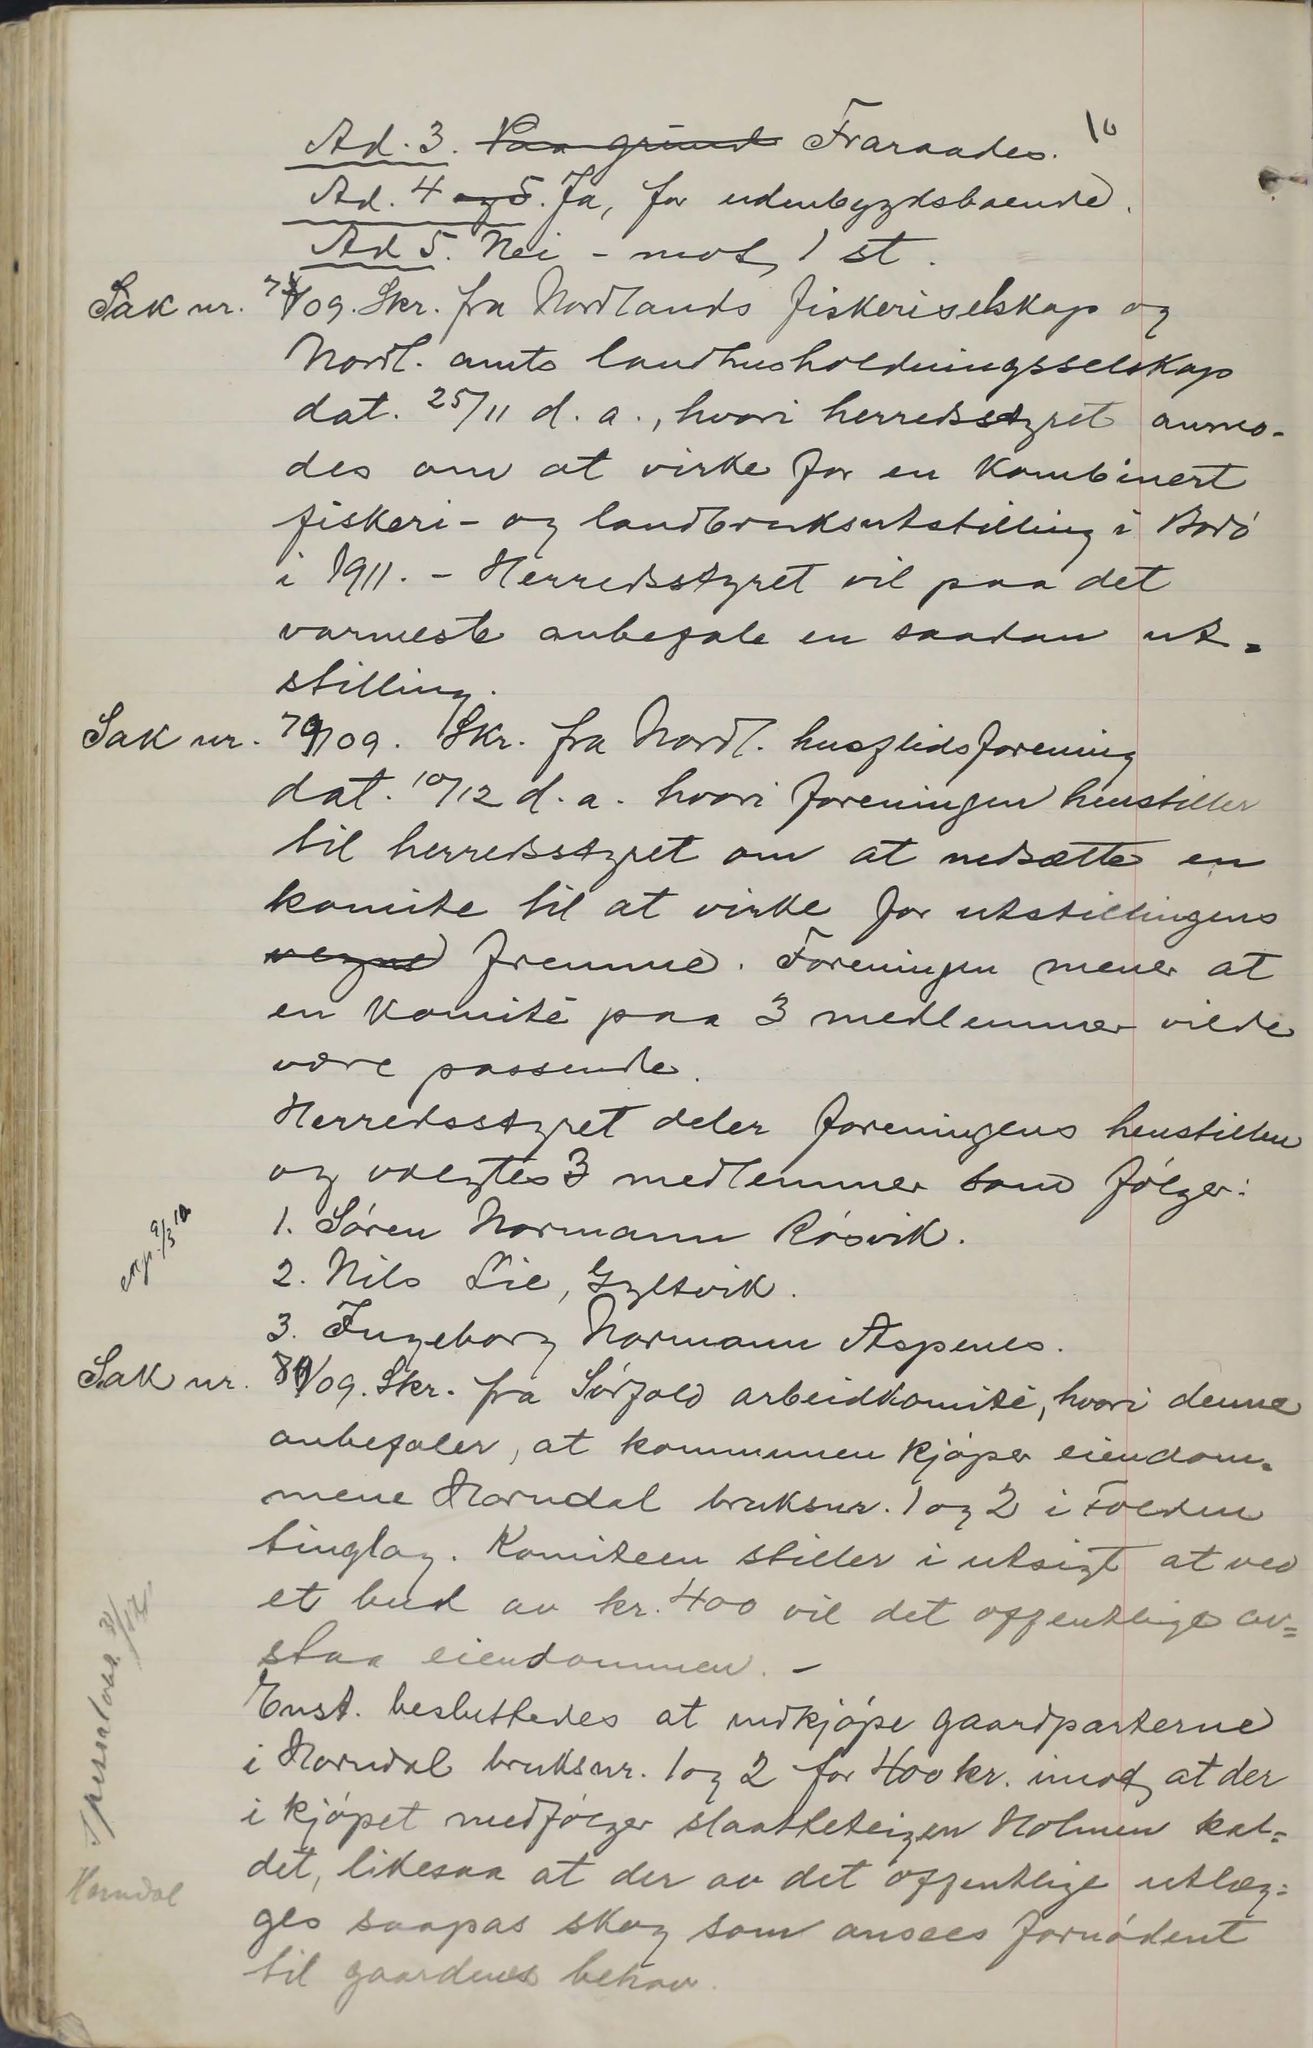 10
Ad. 3. Paa grund Fraraades.
Ad. 4 og 5. Ja, for udenbygdsboende.
Ad 5. Nei - mot 1 st.
Sak nr. 78/09. Skr. fra Nordlands fiskeriselskap og
Nordl. amts landhusholdningsselskap
dat. 25/11 d. a., hvori herredsstyret anmo-
des om at virke for en kombinert
fiskeri- og landbruksutstilling i Bodö
i 1911. - Herredsstyret vil paa det
varmeste anbefale en saadan ut=
stilling.
Sak nr. 79/09. Skr. fra Nordl. husflidsforening
dat. 10/12 d. a. hvori foreningen henstiller
til herredsstyret om at nedsætte en
komite til at virke for utstillingens
vegne fremme. Foreningen mener at
en komité paa 3 medlemmer vilde
være passende.
Herredsstyret deler foreningens henstillen
og valgtes 3 medlemmer som fölger:
1. Sören Normann Rösvik.
exp. 9/3 10
2. Nils Lie, Gyltvik.
3. Ingeborg Normann Aspenes.
Sak nr. 80/09. Skr. fra Sörfold arbeidkomité, hvori denne
anbefaler, at kommunen kjöper eiendom=
mene Horndal bruksnr. 1 og 2 i Folden
tinglag. Komiteen stiller i utsigt at ved
et bud av kr. 400 vil det offentlige av=
staa eiendommen. -
Enst. besluttedes at indkjöpe gaardparterne
i Horndal bruksnr. 1 og 2 for 400 kr. imod at der
i kjöpet medfölger slaatteteigen Holmen kal=
det, likesaa at der av det offentlige utlæg=
Horndal
ges saapas skog som ansees fornödent
til gaardenes behov.